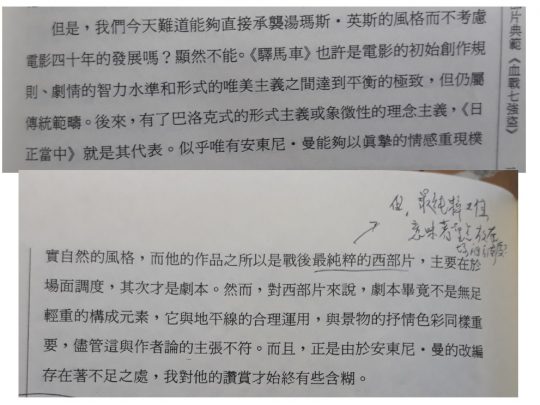 但是，我們今天難道能夠直接承襲湯瑪斯·英斯的風格而不考慮
電影四十年的發展嗎？顯然不能。《驛馬車》也許是電影的初始創作規
則、劇情的智力水準和形式的唯美主義之間達到平衡的極致，但仍屬
傳統範疇。後來，有了巴洛克式的形式主義或象徵性的理念主義，《日
正當中》就是其代表。似乎唯有安東尼·曼能夠以眞摯的情感重現樸
片典範《血戰七強盜》
但，最純粹
意味著重點放在
實自然的風格，而他的作品之所以是戰後最純粹的西部片，主要在於
場面調度，其次才是劇本。然而，對西部片來說，劇本畢竟不是無足
輕重的構成元素，它與地平線的合理運用，與景物的抒情色彩同樣重
要，儘管這與作者論的主張不符。而且，正是由於安東尼·曼的改編
存在著不足之處，我對他的讚賞才始終有些含糊。